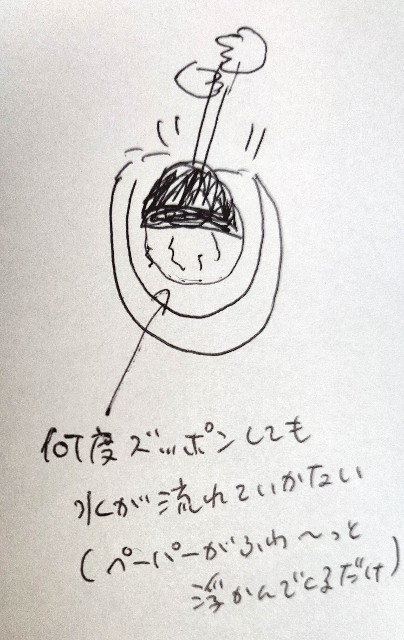 何度ズッポンしても
水が流れていかない
(ペーパーがふわ〜っと
浮かんでくるだけ)